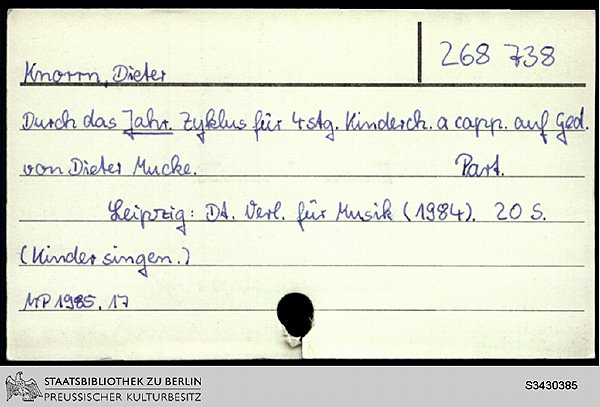 268 738
Knorrn, Dieter
Durch das Jahr. Zyklus für 4stg. Kinderch. a capp. auf Ged.
von Dieter Mucke. Part.
Leipzig: Dt. Verl. für Musik (1984). 20 S.
(Kinder singen.)
MP 1985, 17
STAATSBIBLIOTHEK ZU BERLIN
PREUSSISCHER KULTURBESITZ
S3430385